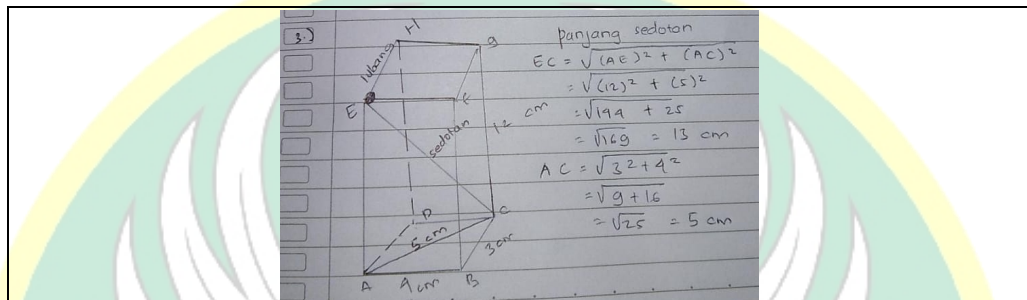 3.)
H
g
lubang
E
F
sedotan
12 cm
D
C
5 cm
3 cm
A
4 cm
B
panjang sedotan
EC = √(AE)² + (AC)²
= √(12)² + (5)²
= √144 + 25
= √169 = 13 cm
AC = √3² + 4²
= √9 + 16
= √25 = 5 cm